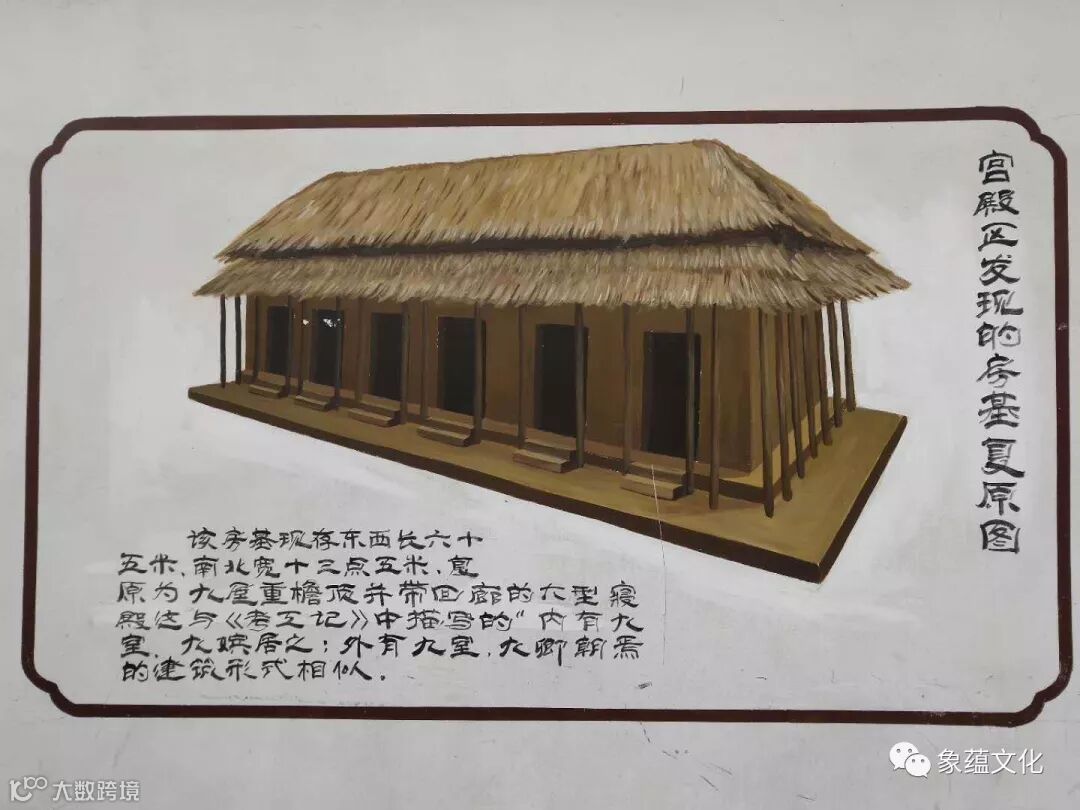 宫殿区发现的房基复原图
该房基现存东西长六十
五米、南北宽十三点五米、复
原为九屋重檐顶并带回廊的大型寝
殿这与《考工记》中描写的“内有九
室，九嫔居之；外有九室，九卿朝焉
的建筑形式相似．
象蕴文化
大数跨境